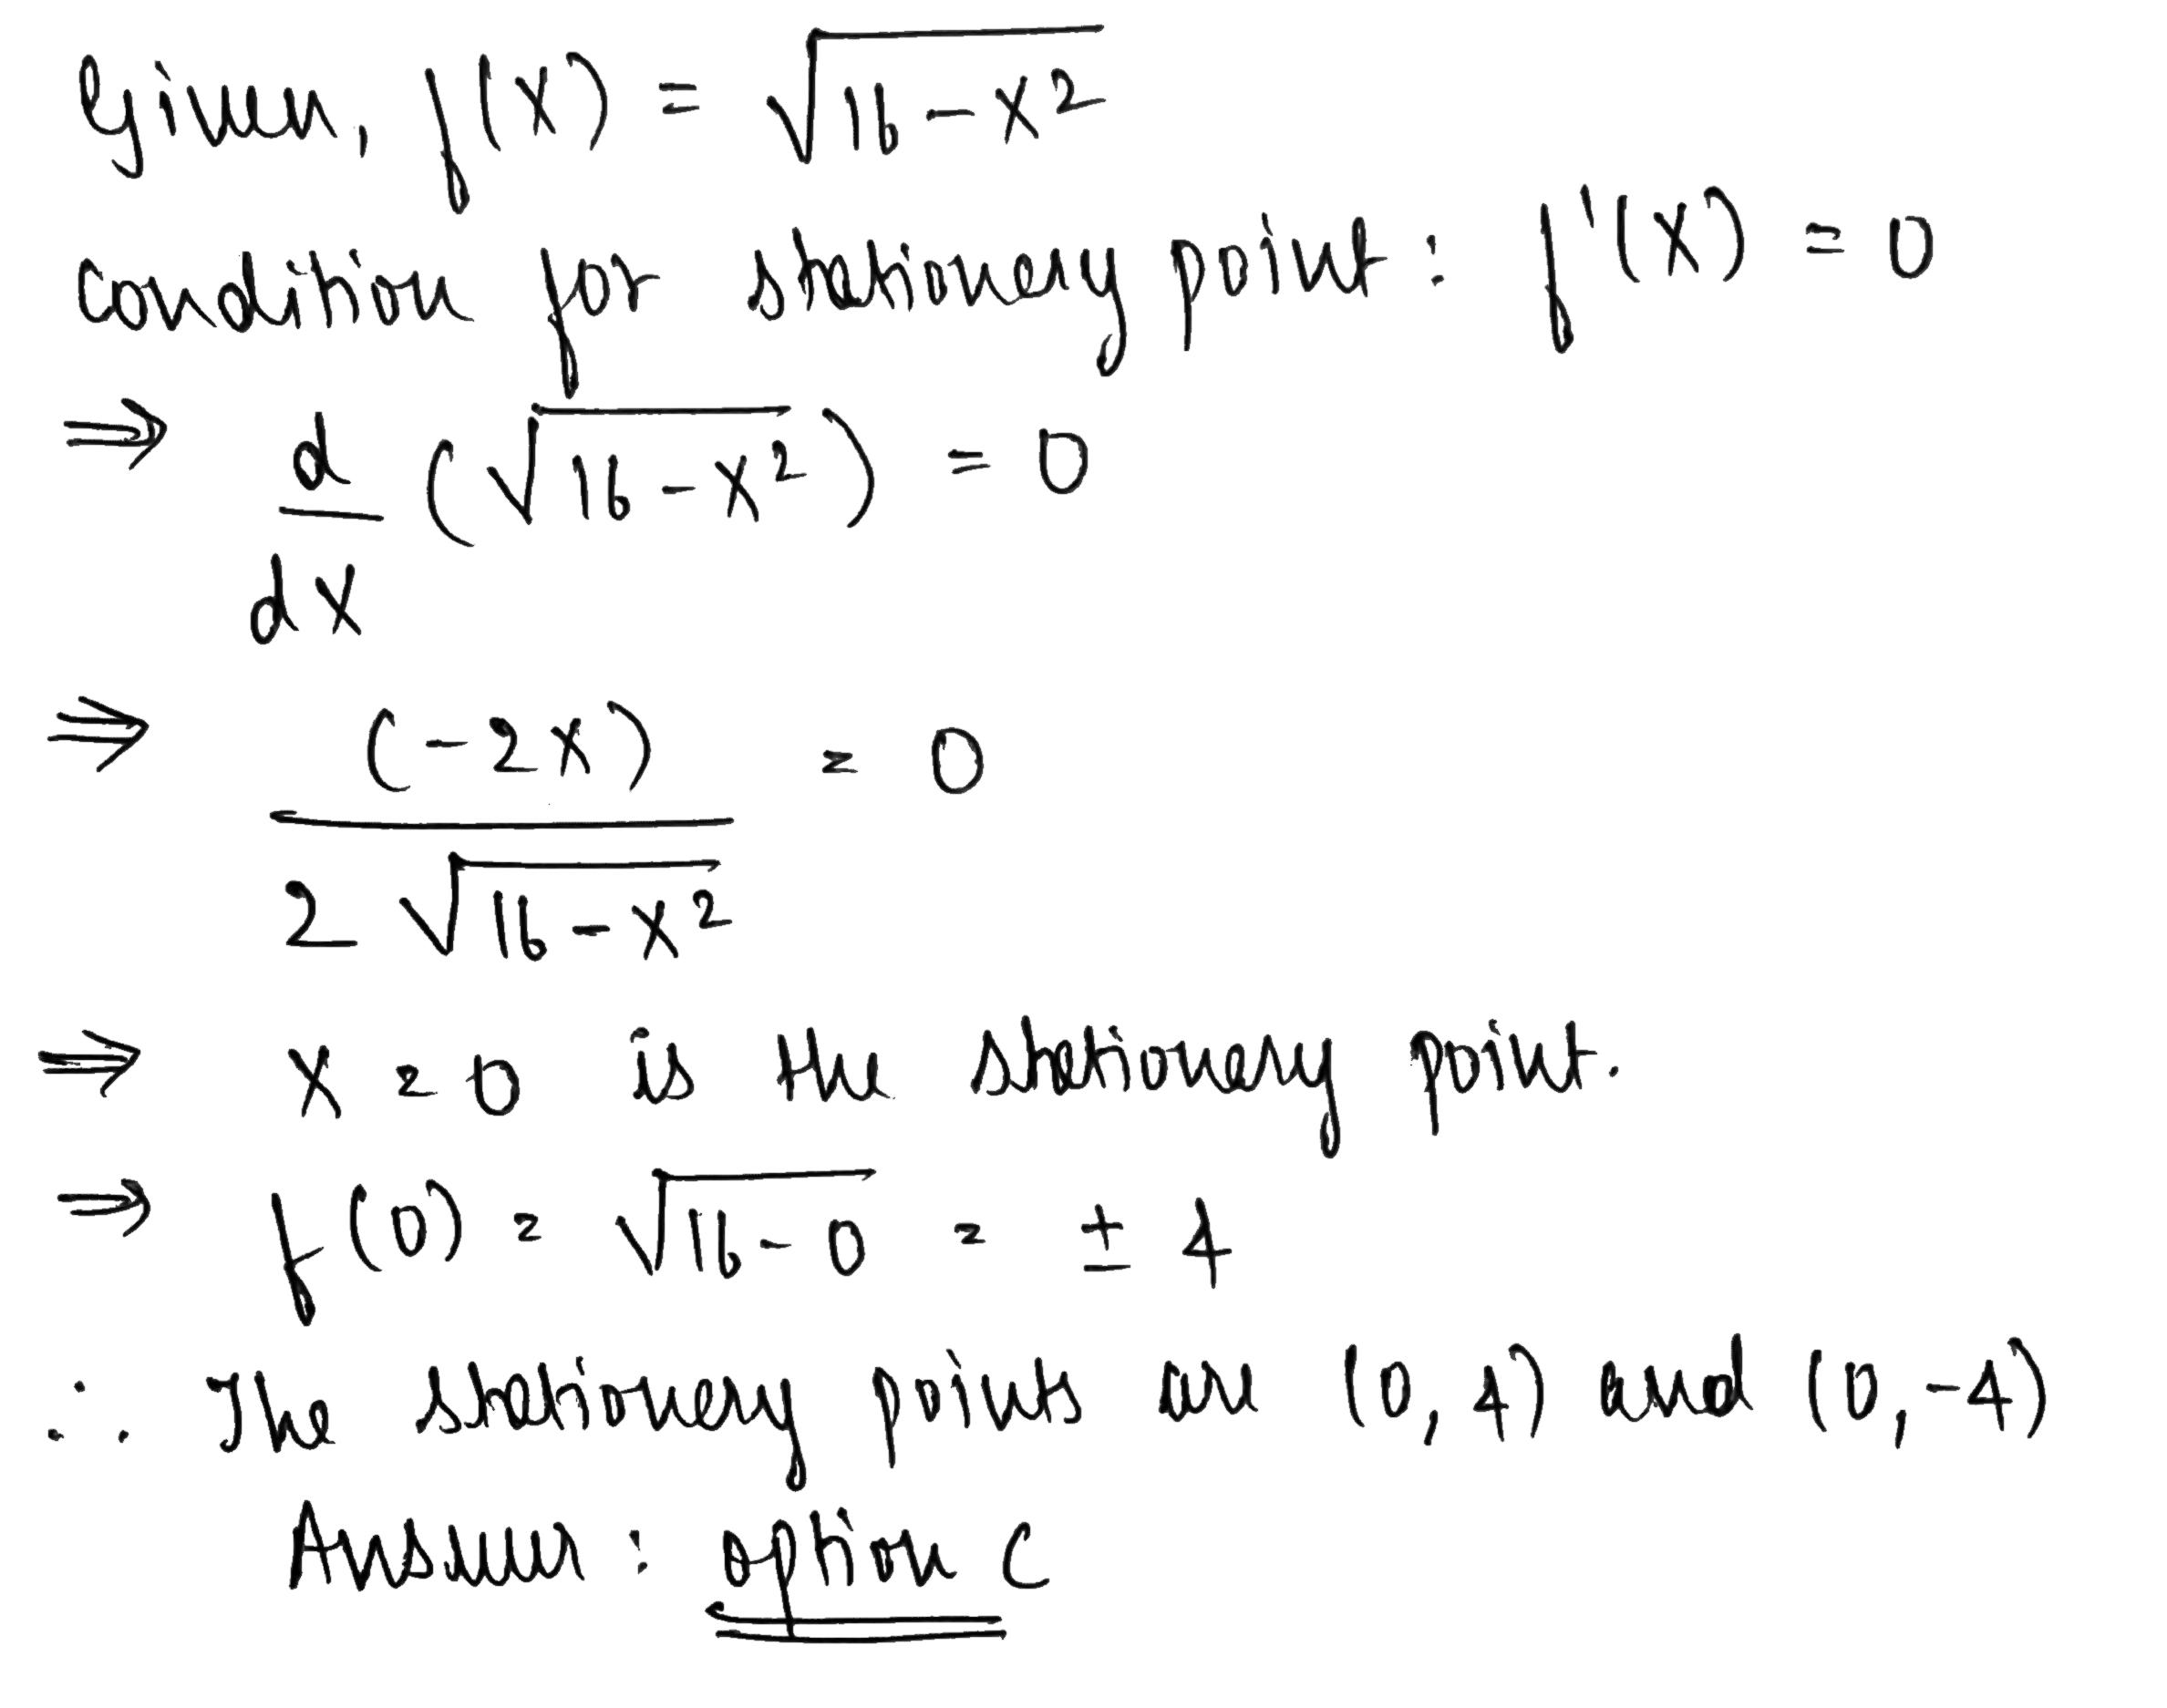 Given, f(x) = √16-x²
Condition for stationery point: f'(x) = 0
⇒ d/dx (√16-x²) = 0
⇒ (-2x) / 2√16-x² = 0
⇒ x = 0 is the stationery point.
⇒ f(0) = √16-0 = ± 4
∴ The stationery points are (0, 4) and (0, -4)
Answer : option C